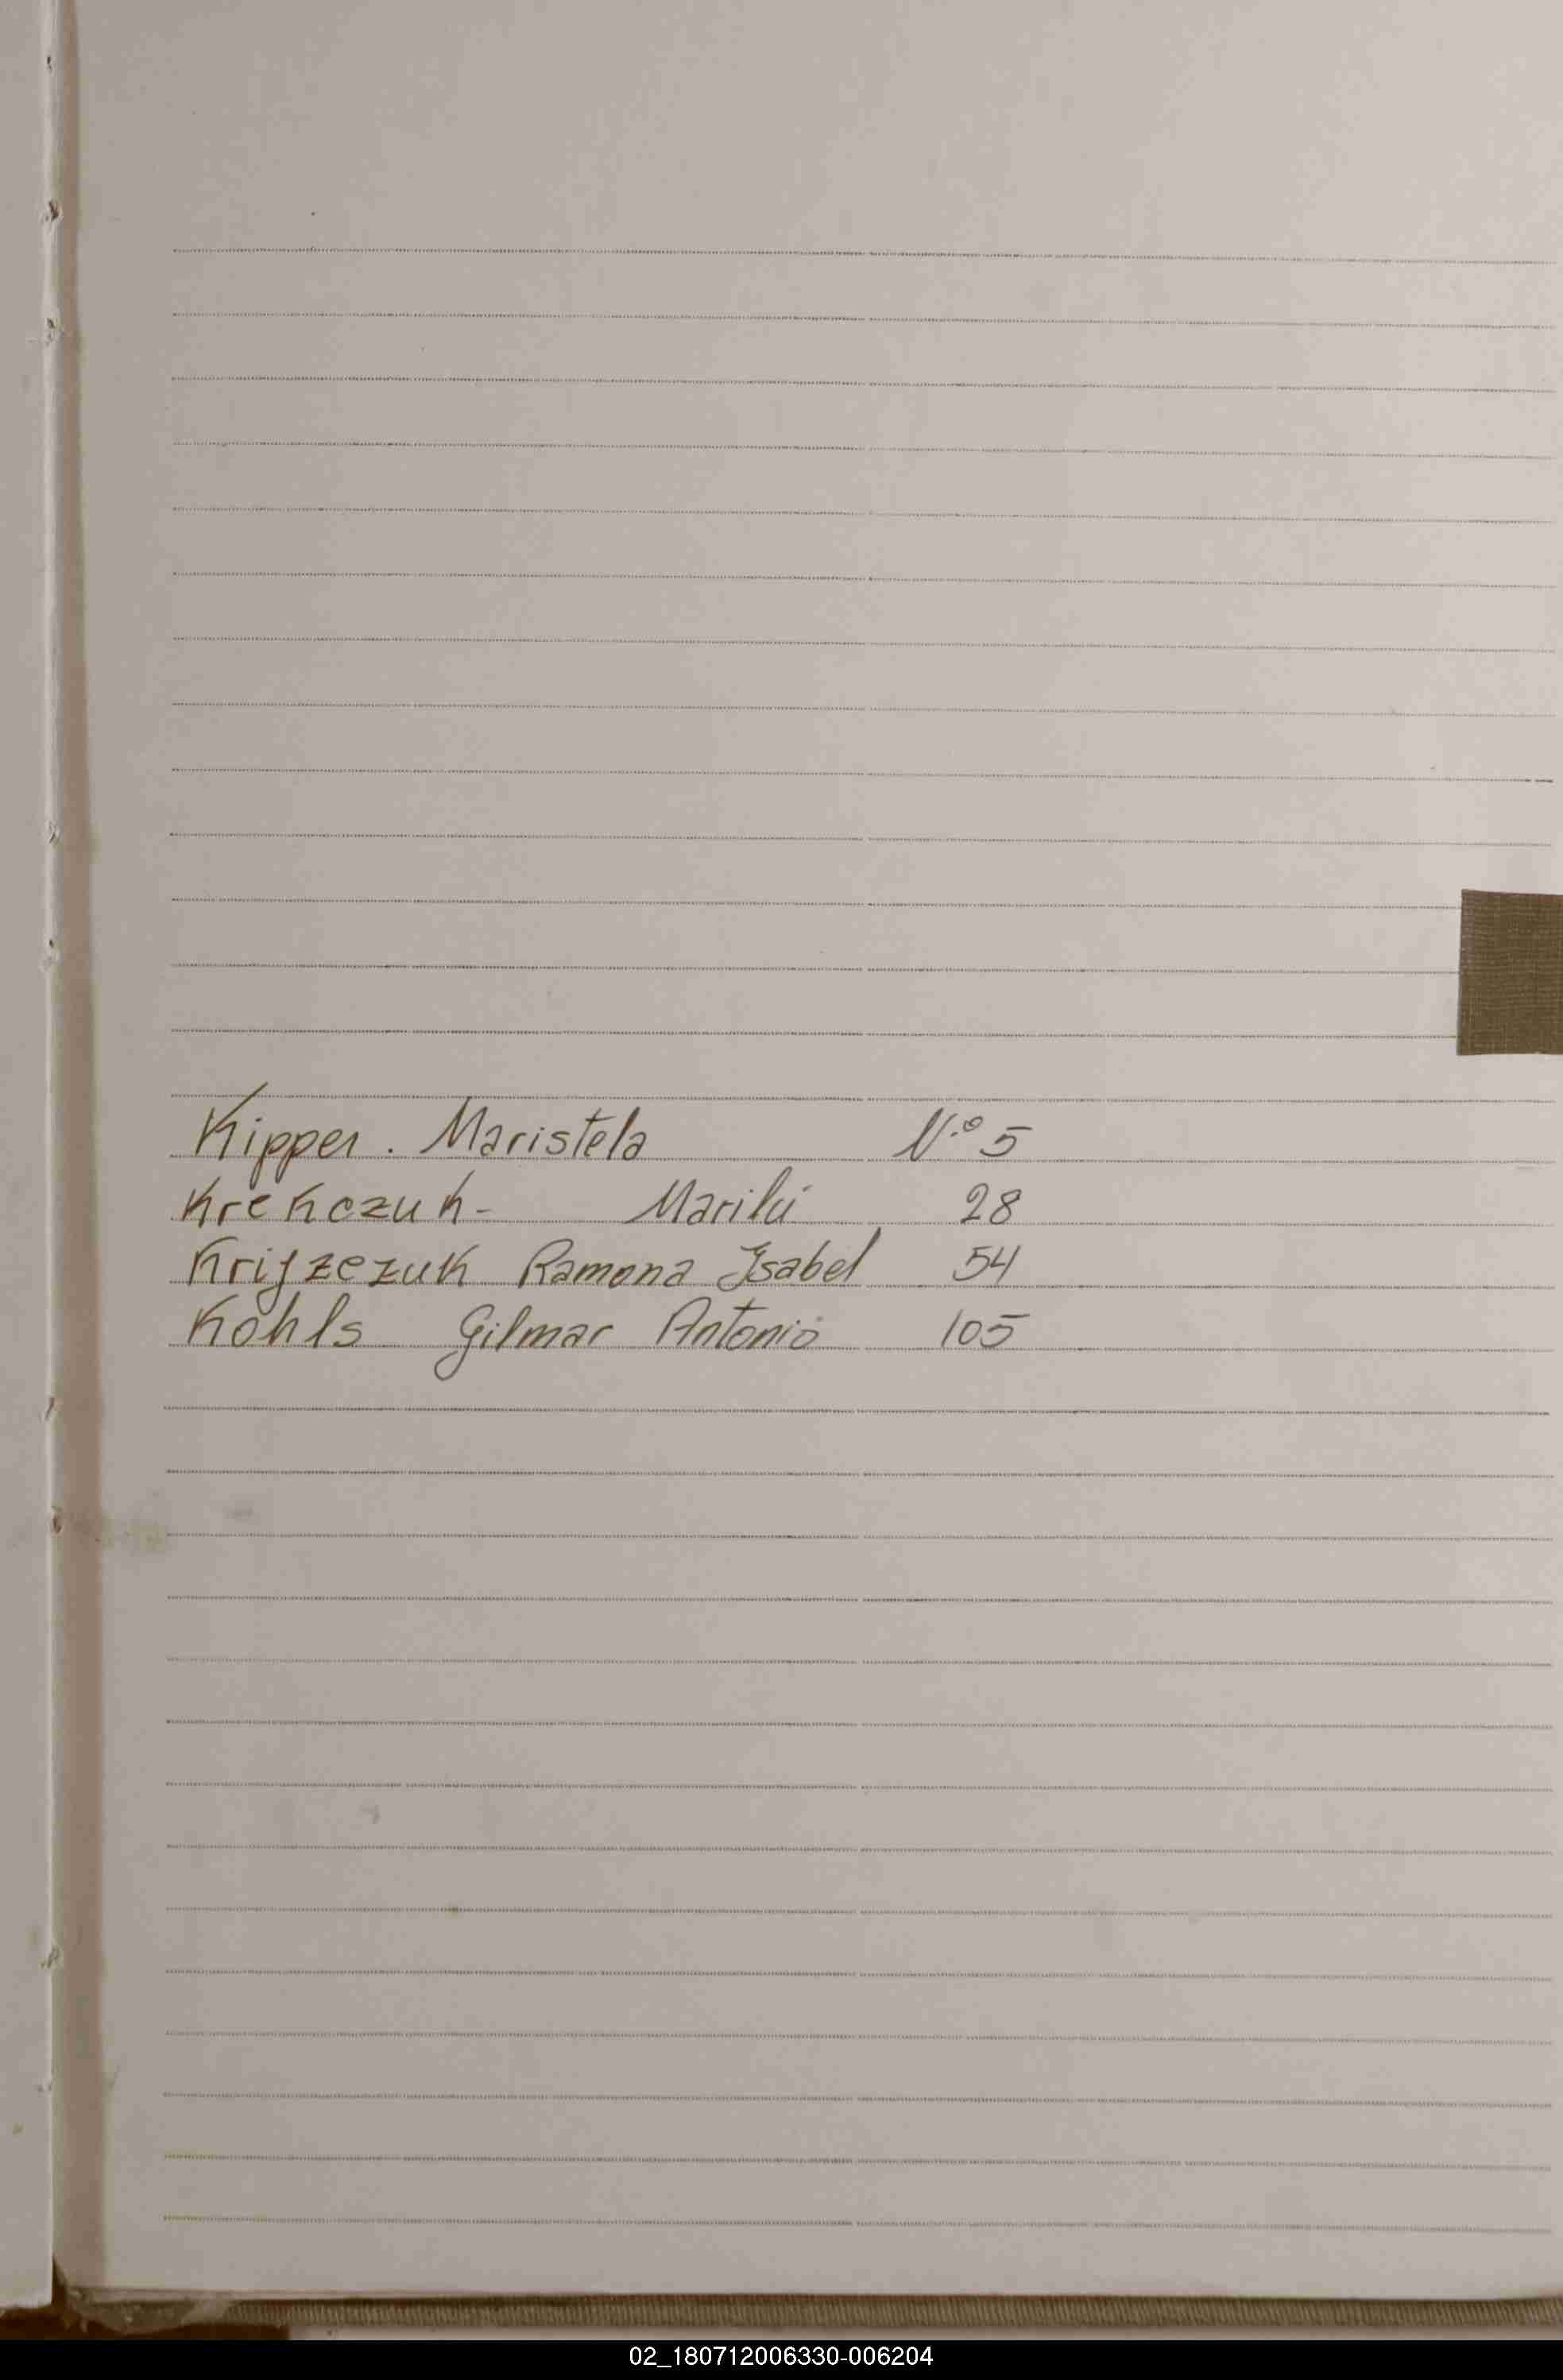 Kipper. Maristela N.º 5
Krekczuk- Marilú 28
Kriſzczuk Ramona Isabel 54
Kohls Gilmar Antonio 105
02_180712006330-006204